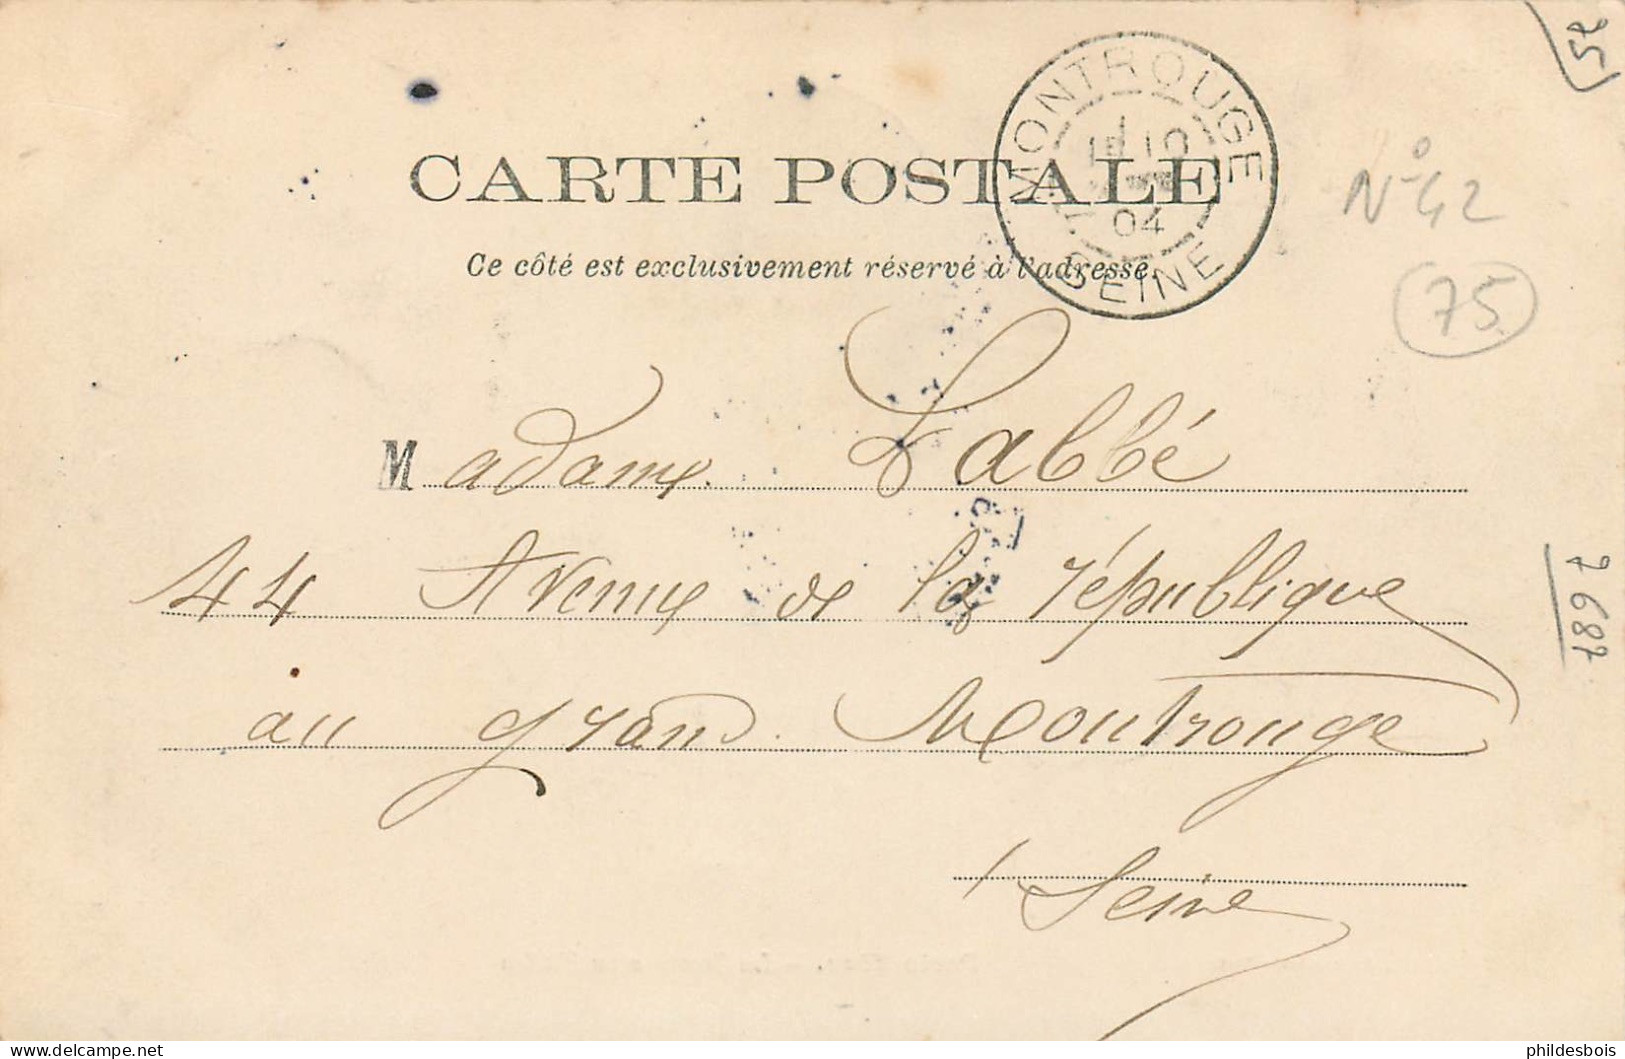 CARTE POSTALE
Ce côté est exclusivement réservé à l'adresse.
MONTROUGE
04
SEINE
75
N° 42
75
Madame Labbé
44 Avenue de la république
au grand Montrouge
Seine
7687
phildesbois